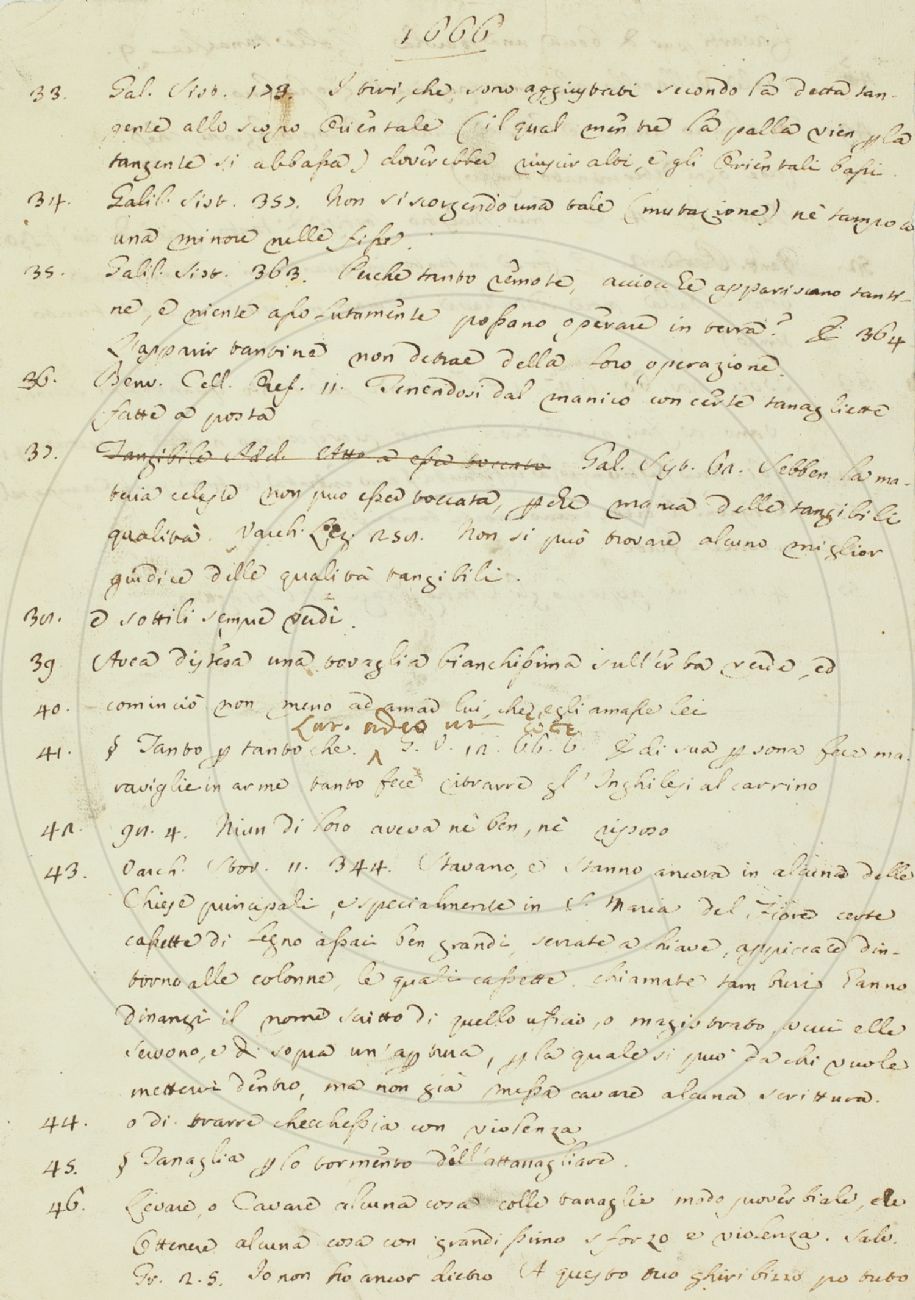 1666
33. Gal. Sist. 179. I tiri, che sono aggiustati secondo la detta tan-
gente allo scopo Orientale (il qual mentre la palla vien p la
tangente si abbassa) doverebber riuscir alti, e gli Orientali bassi.
34. Galil. Sist. 357. Non si scorgendo una tale (mutazione) nè tampoco
una minore nelle fisse.
35. Galil. Sist. 363. Perchè tanto remote, acciocchè appariscano tanti-
ne, e niente assolutamente possano operare in terra? E 364
L'apparir tantine non detrae della loro operazione.
36. Benv. Cell. Oref. 11. Tenendosi dal manico con certe tanagliette
fatte a posta
37. Tangibile Add. Atto a esser toccato Gal. Sist. 61. Sebben la ma-
teria celeste non può esser toccata, pchè manca delle tangibili
qualità. Varch. Lez. 251. Non si può trovare alcuno miglior
giudice delle qualità tangibili.
38. e sottili sempre verdi.
39. Avea distesa una tovaglia bianchissima sull'erba verde, ed
40. cominciò non meno ad amar lui, che egli amasse lei
Lat. adeo ut &c.
41. § Tanto p tanto che. G. V. 12. 66. 6. E di sua psona fece ma-
raviglie in arme tanto fece ritrarre gl'Inghilesi al carrino
42. 92. 4. Niun di loro aveva nè ben, nè riposo
43. Varch. Stor. 11. 344. Stavano, e stanno ancora in alcune delle
Chiese principali, e specialmente in S. Maria del Fiore certe
cassette di legno assai ben grandi, serrate a chiave, appiccate din-
torno alle colonne, le quali cassette chiamate tamburi hanno
dinanzi il nome scritto di quello ufizio, o magistrato, a cui elle
servono, e di sopra un'aptura, p la quale si può da chi vuole
mettervi dentro, ma non già messa cavare alcuna scrittura.
44. o di trarre checchessia con violenza
45. § Tanaglia p lo tormento dell'attanagliare.
46. Levare, o Cavare alcuna cosa colle tanaglie modo proverbiale, e le
Ottenere alcuna cosa con grandissimo sforzo e violenza. Salv.
Gr. 2. 5. Io non ho ancor dietro A questo tuo ghiribizzo po tuto